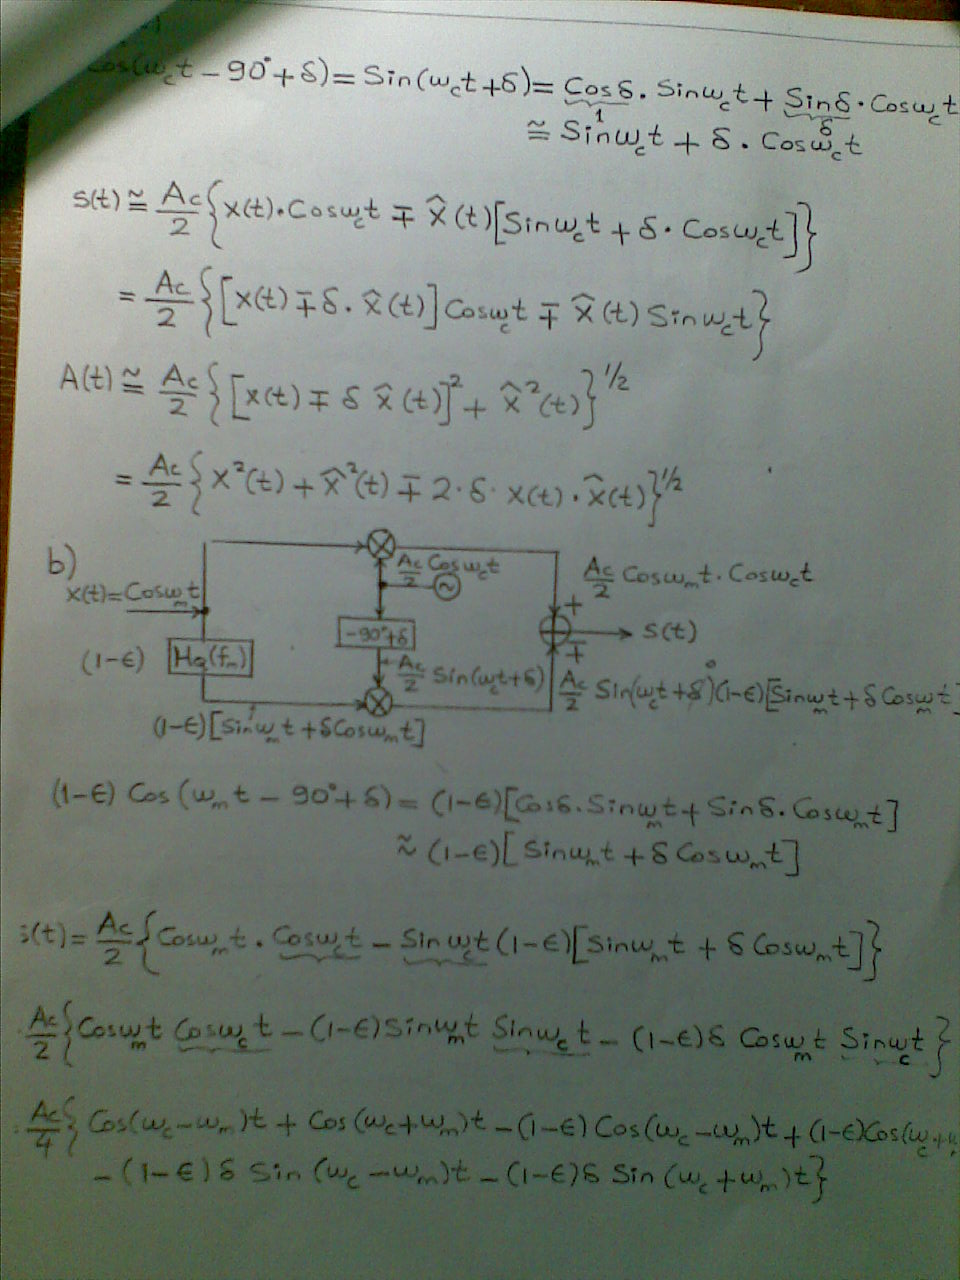 Cos(ω_c t − 90° + δ) = Sin(ω_c t + δ) = Cosδ . Sinω_c t + Sinδ . Cosω_c t
1 δ
≅ Sinω_c t + δ . Cosω_c t
s(t) ≅ Ac/2 { x(t) . Cosω_c t ∓ x̂(t) [Sinω_c t + δ . Cosω_c t] }
= Ac/2 { [x(t) ∓ δ . x̂(t)] Cosω_c t ∓ x̂(t) Sinω_c t }
A(t) ≅ Ac/2 { [x(t) ∓ δ x̂(t)]² + x̂²(t) }^1/2
= Ac/2 { x²(t) + x̂²(t) ∓ 2 . δ . x(t) . x̂(t) }^1/2
b)
x(t) = Cosω_m t
Ac/2 Cosω_c t
~
Ac/2 Cosω_m t . Cosω_c t
+
−90°+δ
s(t)
∓
(1−ϵ)
H_Q(f_m)
Ac/2 Sin(ω_c t + δ)
0
Ac/2 Sin(ω_c t + δ)(1−ϵ)[Sinω_m t + δ Cosω_m t]
(1−ϵ)[Sinω_m t + δ Cosω_m t]
(1−ϵ) Cos(ω_m t − 90° + δ) = (1−ϵ)[Cosδ . Sinω_m t + Sinδ . Cosω_m t]
≈ (1−ϵ)[Sinω_m t + δ Cosω_m t]
s(t) = Ac/2 { Cosω_m t . Cosω_c t − Sinω_c t (1−ϵ)[Sinω_m t + δ Cosω_m t] }
Ac/2 { Cosω_m t Cosω_c t − (1−ϵ) Sinω_m t Sinω_c t − (1−ϵ) δ Cosω_m t Sinω_c t }
Ac/4 { Cos(ω_c − ω_m)t + Cos(ω_c + ω_m)t − (1−ϵ) Cos(ω_c − ω_m)t + (1−ϵ) Cos(ω_c +
− (1−ϵ) δ Sin(ω_c − ω_m)t − (1−ϵ) δ Sin(ω_c + ω_m)t }